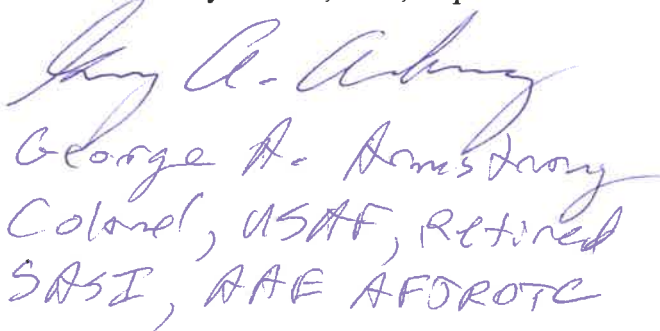 George A. Armstrong
Colonel, USAF, Retired
SASI, AAE AFJROTC